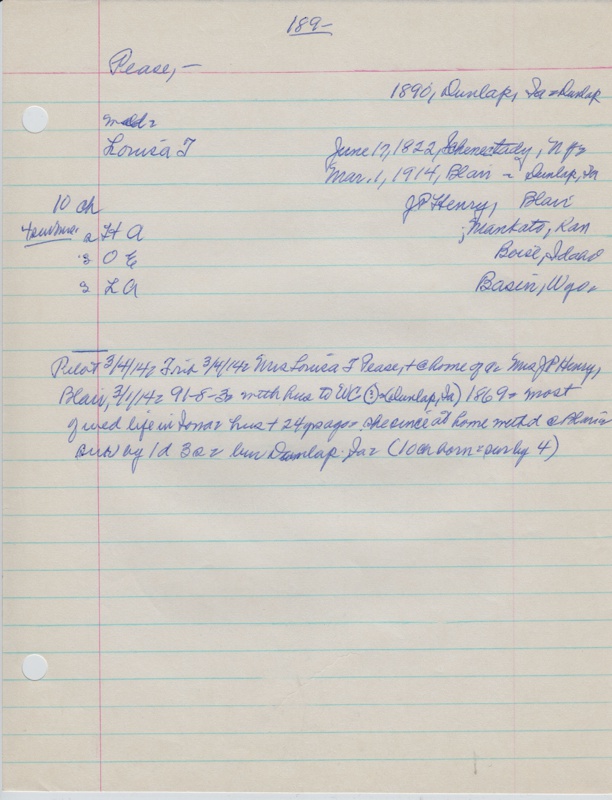 189-
Pease, -
1890, Dunlap, Ia = Dunlap
md=
Louisa T June 17, 1822, Schenectady, NY=
Mar. 1, 1914, Blair - Dunlap, Ia
10 ch JP Henry, Blair
4 surv ma. s H A ; Mankato, Kan
s O E Boise, Idaho
s L A Basin, Wyo=
Pilot 3/4/14= Trib 3/4/14= Mrs Louisa T Pease, + @ home of d= Mrs JP Henry,
Blair, 3/1/14= 91-8-3= with hus to WC (:) = (Dunlap, Ia) 1869= most
of wed life in Iowa= hus + 24 yrs ago= she since at home with d @ Blair=
surv by 1d 3s= bur Dunlap. Ia= (10 ch born = surv by 4)